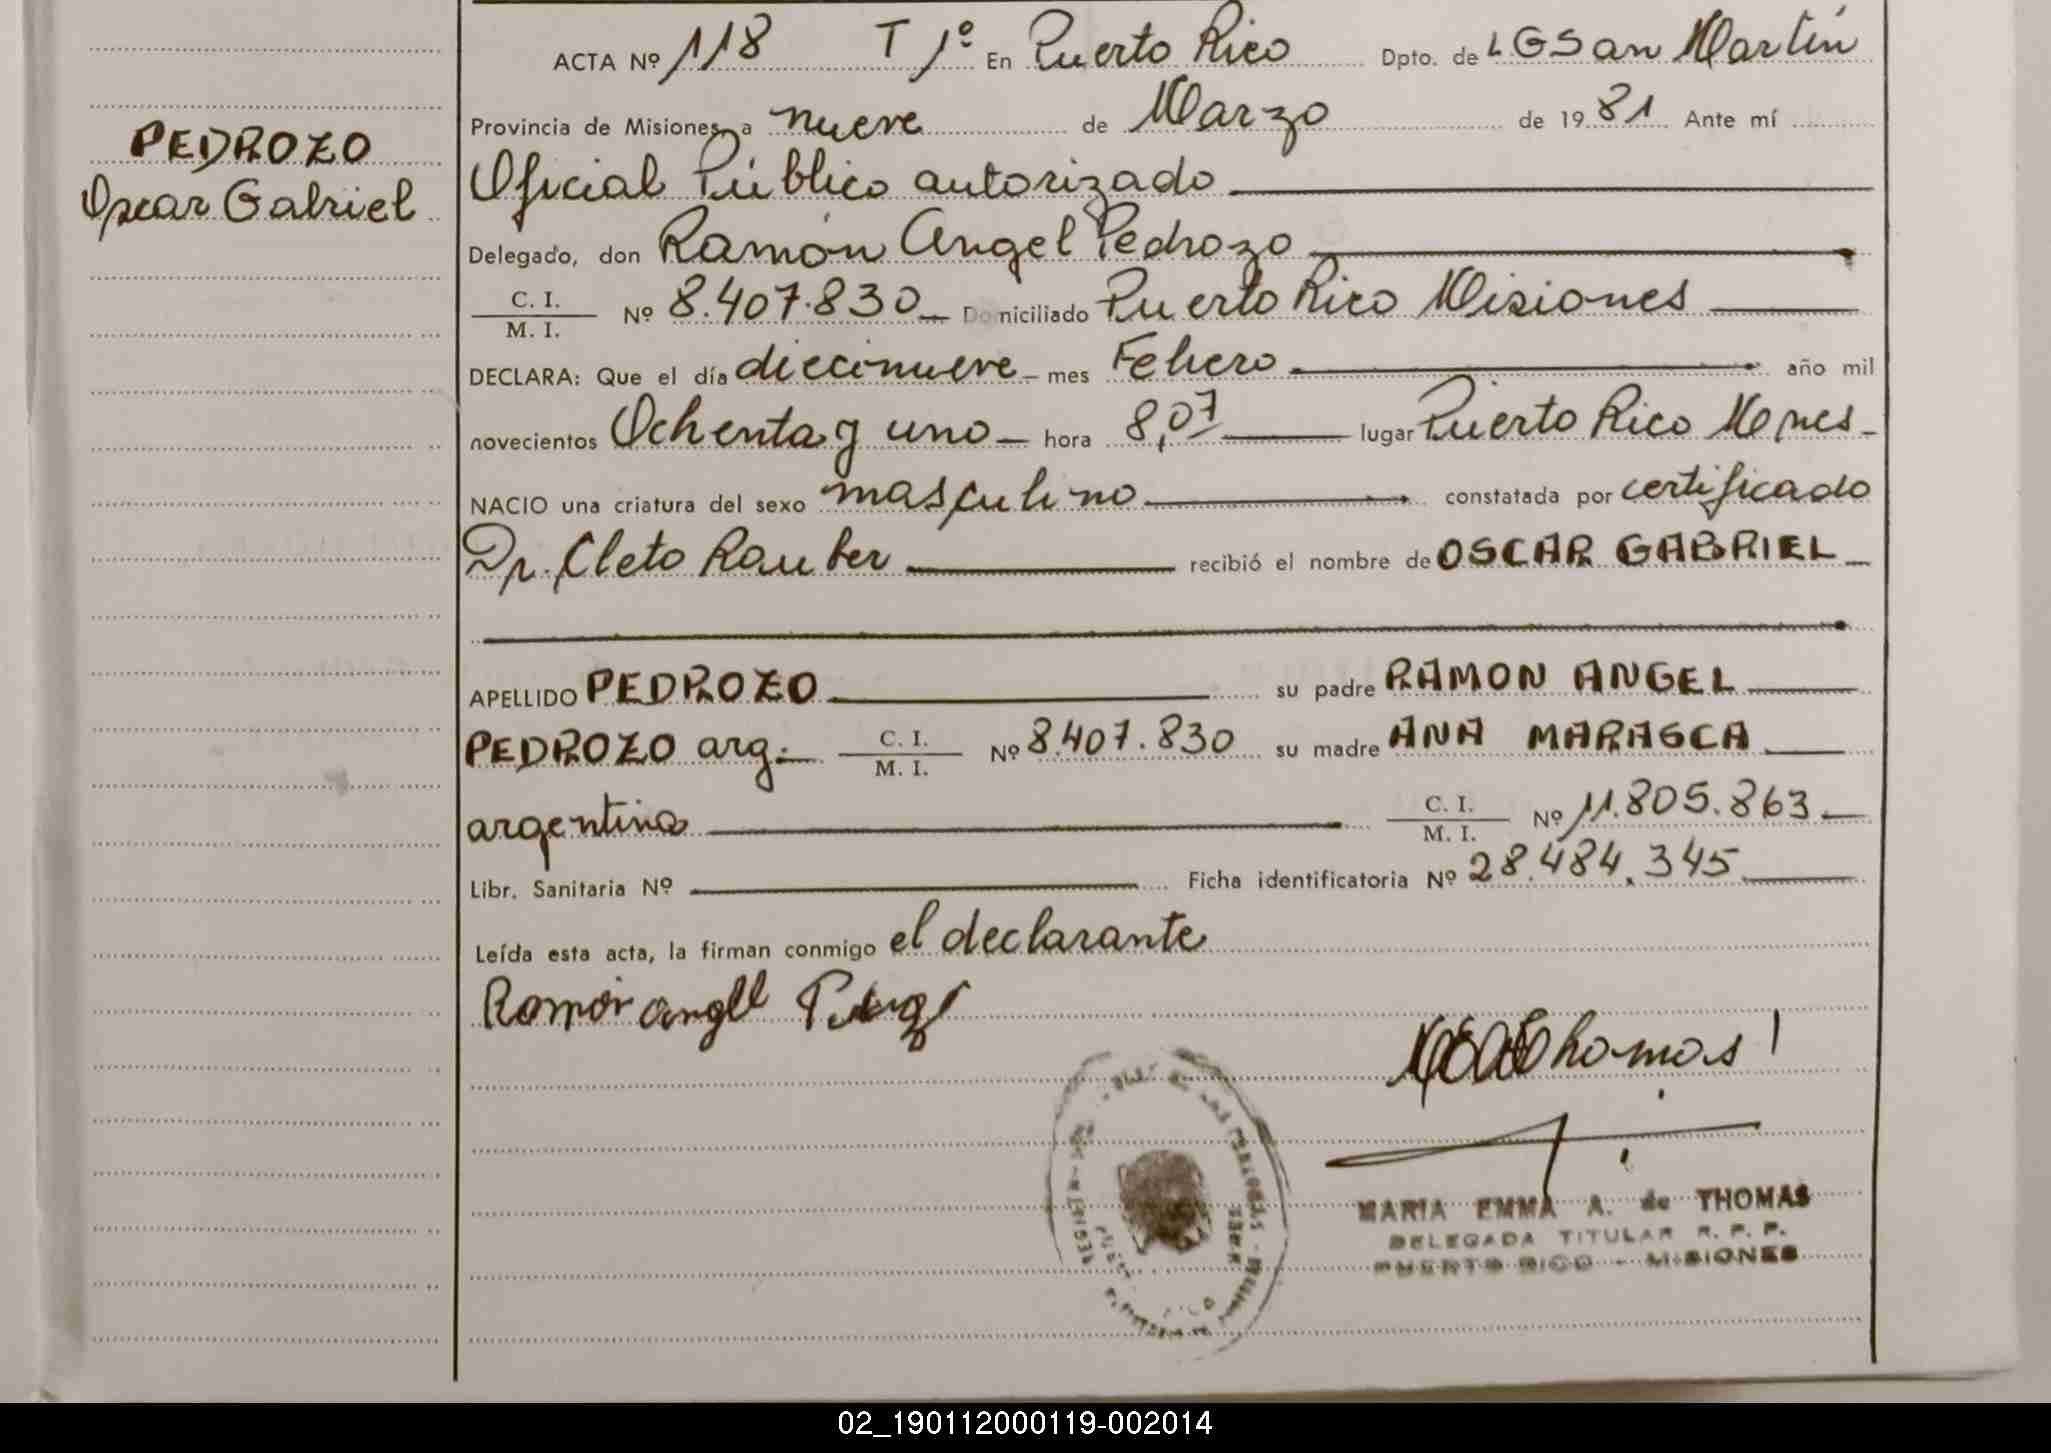 ACTA Nº 118 T 1º En Puerto Rico Dpto. de LGSan Martín
Provincia de Misiones, a nueve de Marzo de 1981 Ante mí
PEDROZO
Oscar Gabriel
Oficial Público autorizado
Delegado, don Ramón Angel Pedrozo
C. I.
M. I. Nº 8.407.830 Domiciliado Puerto Rico Misiones
DECLARA: Que el día diecinueve mes Febrero año mil
novecientos Ochenta y uno hora 8,07 lugar Puerto Rico Mnes
NACIO una criatura del sexo masculino constatada por certificado
Dr. Cleto Rauber recibió el nombre de OSCAR GABRIEL
APELLIDO PEDROZO su padre RAMON ANGEL
PEDROZO arg. C. I.
M. I. Nº 8.407.830 su madre ANA MARASCA
argentina C. I.
M. I. Nº 11.805.863
Libr. Sanitaria Nº Ficha identificatoria Nº 28.484.345
Leída esta acta, la firman conmigo el declarante
Ramón Angel
Thomas
MARIA EMMA A. de THOMAS
DELEGADA TITULAR R. P. P.
PUERTO RICO - MISIONES
02_190112000119-002014